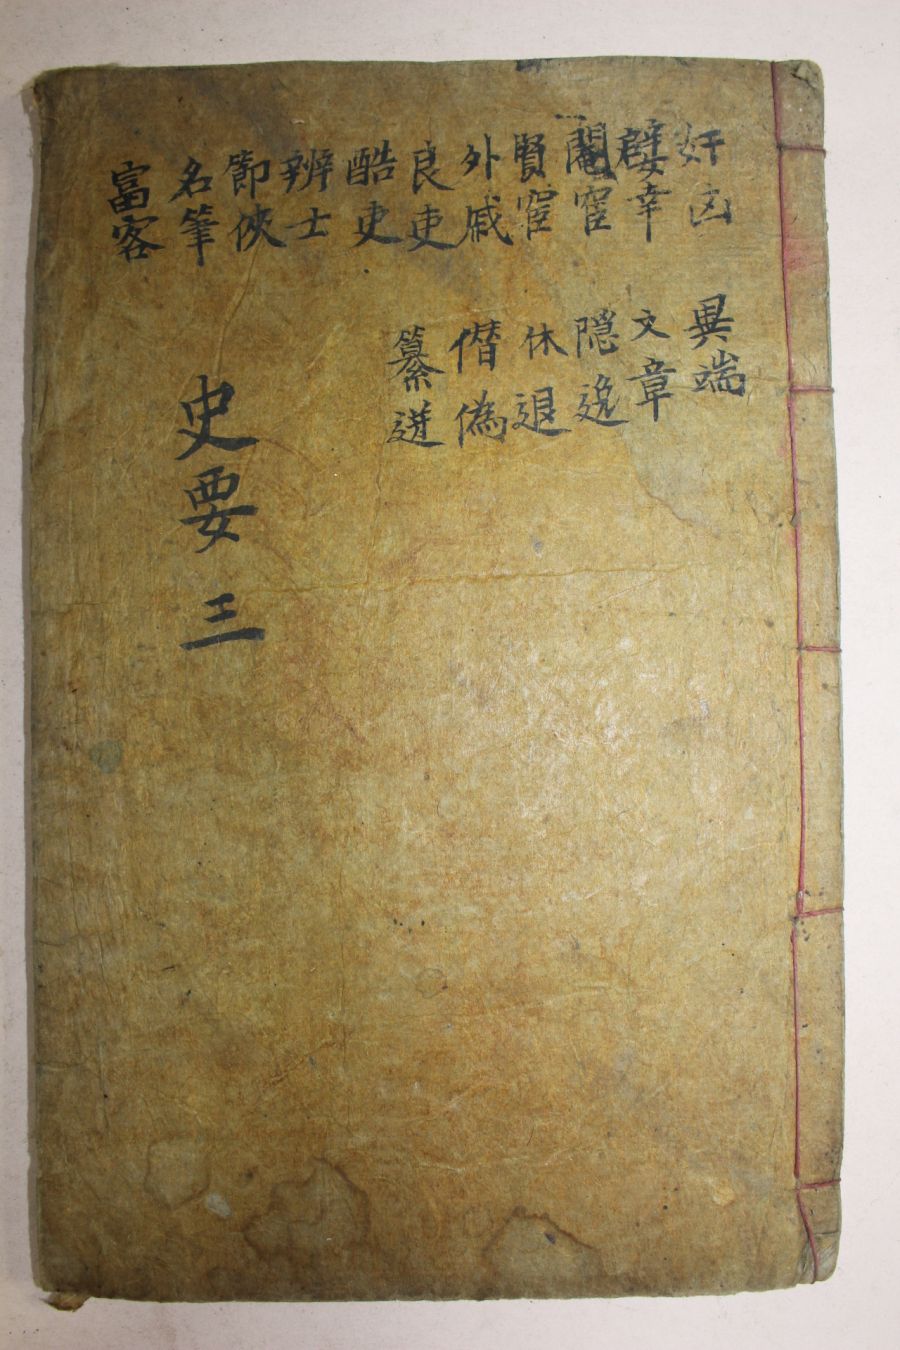 奸凶
嬖幸
閹宦
賢宦
外戚
良吏
酷吏
辨士
節俠
名筆
富客
異端
文章
隠逸
休退
僭偽
纂逆
史要 三